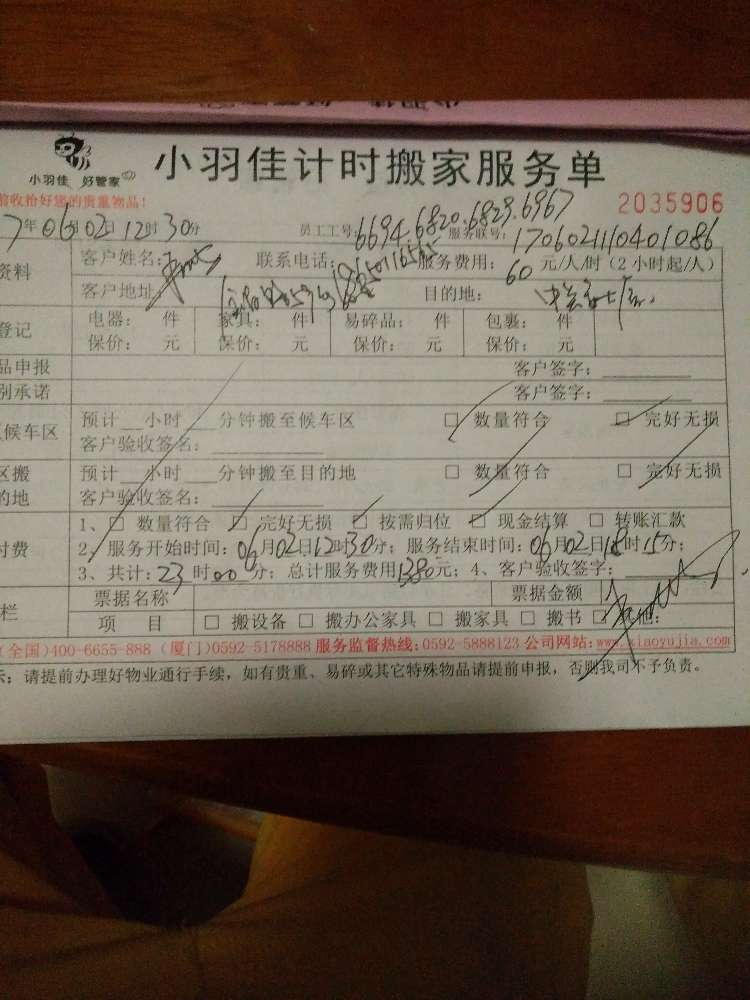 小羽佳计时搬家服务单
小羽佳 好管家
前收拾好您的贵重物品!
2035906
7年06月02日12时30分 员工工号:6694.6820.6829.6967
服务联号:170602110401086
资料 客户姓名: 联系电话: 服务费用:60元/人/时(2小时起/人)
客户地址: 目的地:
登记 电器: 件 家具: 件 易碎品: 件 包裹: 件
保价: 元 保价: 元 保价: 元 保价: 元
品申报 客户签字:
别承诺 客户签字:
候车区 预计__小时__分钟搬至候车区 □ 数量符合 □ 完好无损
客户验收签名:
区搬 预计__小时__分钟搬至目的地 □ 数量符合 □ 完好无损
的地 客户验收签名:
1、□ 数量符合 □ 完好无损 □ 按需归位 □ 现金结算 □ 转账汇款
付费 2、服务开始时间:06月02日12时30分;服务结束时间:06月02日18时15分;
3、共计:23时00分;总计服务费用1380元;4、客户验收签字:
栏 票据名称 票据金额
项 目 □ 搬设备 □ 搬办公家具 □ 搬家具 □ 搬书 □ 其他:
(全国)400-6655-888 (厦门)0592-5178888 服务监督热线:0592-5888123 公司网站:www.xiaoyujia.com
示:请提前办理好物业通行手续,如有贵重、易碎或其它特殊物品请提前申报,否则我司不予负责。